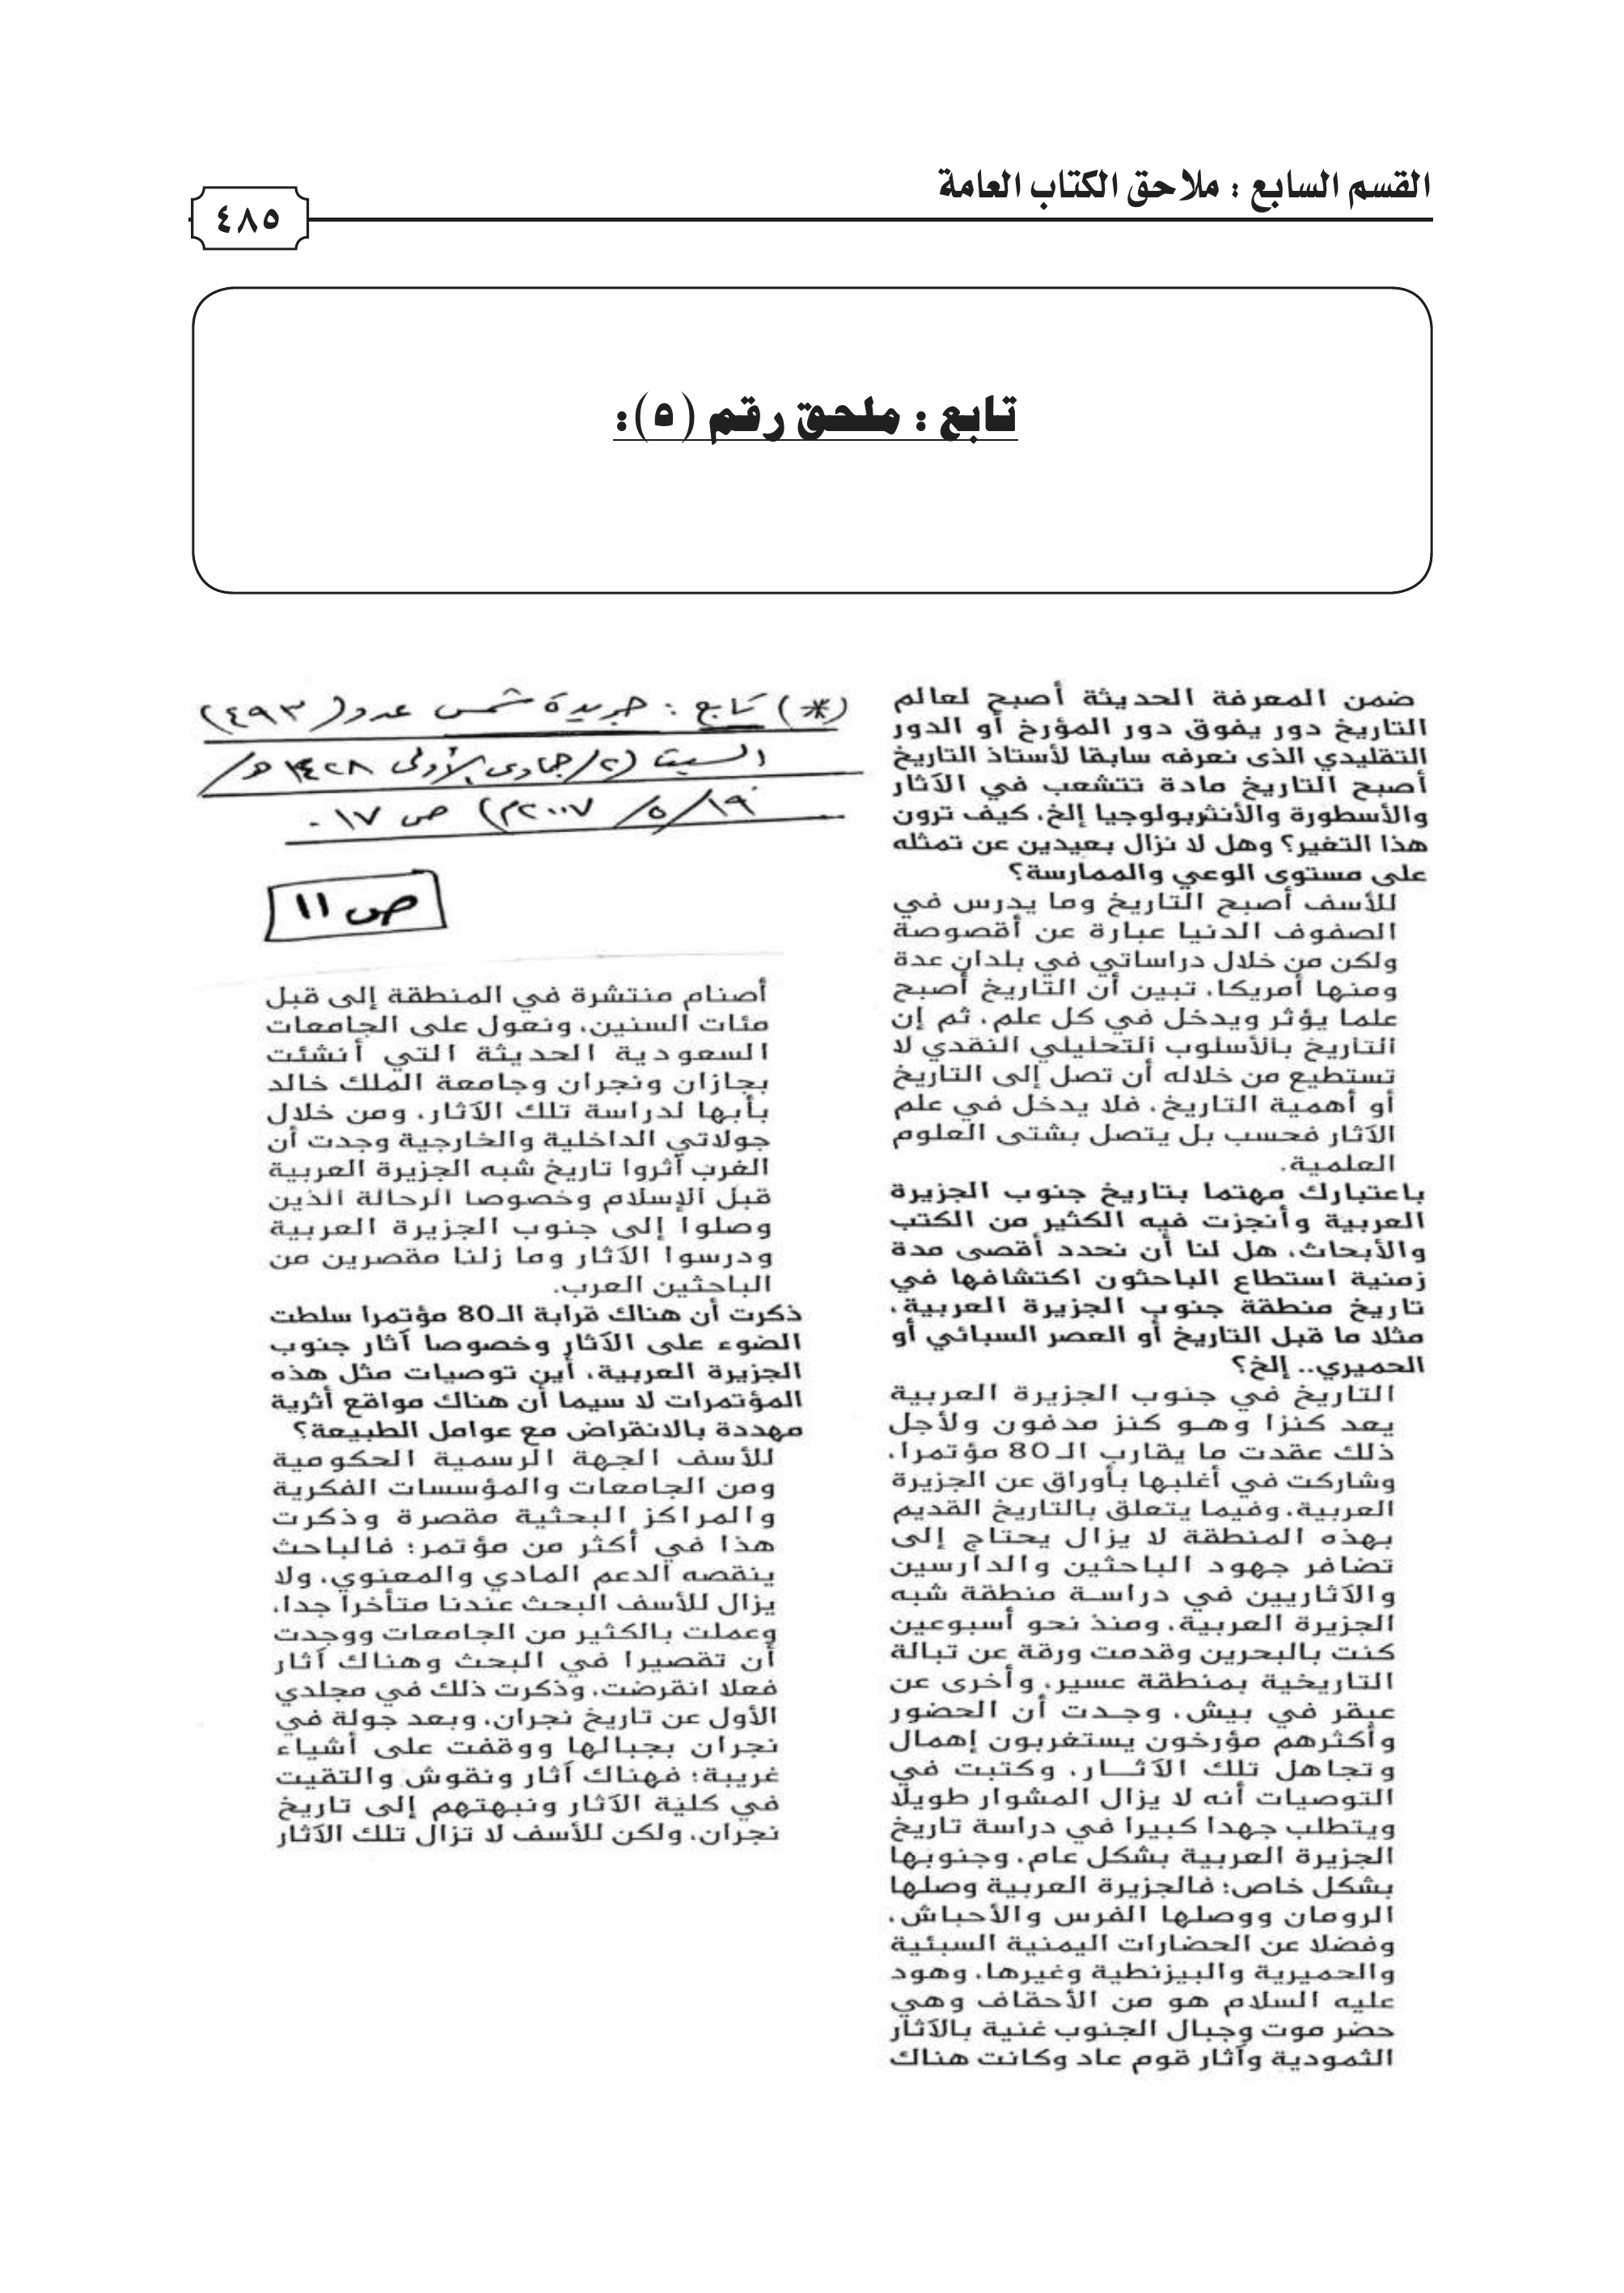 القسم السابع : ملاحق الكتاب العامة
٤٨٥
تابع : ملحق رقم (٥):
ضمن المعرفة الحديثة أصبح لعالم
التاريخ دور يفوق دور المؤرخ أو الدور
التقليدي الذى نعرفه سابقا لأستاذ التاريخ
أصبح التاريخ مادة تتشعب في الآثار
والأسطورة والأنثربولوجيا إلخ، كيف ترون
هذا التغير؟ وهل لا نزال بعيدين عن تمثله
على مستوى الوعي والممارسة؟
للأسف أصبح التاريخ وما يدرس في
الصفوف الدنيا عبارة عن أقصوصة
ولكن من خلال دراساتي في بلدان عدة
ومنها أمريكا، تبين أن التاريخ أصبح
علما يؤثر ويدخل في كل علم، ثم إن
التاريخ بالأسلوب التحليلي النقدي لا
تستطيع من خلاله أن تصل إلى التاريخ
أو أهمية التاريخ، فلا يدخل في علم
الآثار فحسب بل يتصل بشتى العلوم
العلمية.
باعتبارك مهتما بتاريخ جنوب الجزيرة
العربية وأنجزت فيه الكثير من الكتب
والأبحاث، هل لنا أن نحدد أقصى مدة
زمنية استطاع الباحثون اكتشافها في
تاريخ منطقة جنوب الجزيرة العربية،
مثلا ما قبل التاريخ أو العصر السبائي أو
الحميري.. إلخ؟
التاريخ في جنوب الجزيرة العربية
يعد كنزا وهو كنز مدفون ولأجل
ذلك عقدت ما يقارب الـ80 مؤتمرا،
وشاركت في أغلبها بأوراق عن الجزيرة
العربية، وفيما يتعلق بالتاريخ القديم
بهذه المنطقة لا يزال يحتاج إلى
تضافر جهود الباحثين والدارسين
والآثاريين في دراسة منطقة شبه
الجزيرة العربية، ومنذ نحو أسبوعين
كنت بالبحرين وقدمت ورقة عن تبالة
التاريخية بمنطقة عسير، وأخرى عن
عبقر في بيش، وجدت أن الحضور
وأكثرهم مؤرخون يستغربون إهمال
وتجاهل تلك الآثـار، وكتبت في
التوصيات أنه لا يزال المشوار طويلا
ويتطلب جهدا كبيرا في دراسة تاريخ
الجزيرة العربية بشكل عام، وجنوبها
بشكل خاص؛ فالجزيرة العربية وصلها
الرومان ووصلها الفرس والأحباش،
وفضلا عن الحضارات اليمنية السبئية
والحميرية والبيزنطية وغيرها، وهود
عليه السلام هو من الأحقاف وهي
حضر موت وجبال الجنوب غنية بالآثار
الثمودية وآثار قوم عاد وكانت هناك
(*) تابع : جريدة شمس عدد (٤٩٣)
السبت (٢/جمادى الأولى ١٤٢٨هـ/
١٩/ ٥/ ٢٠٠٧م) ص ١٧.
ص ١١
أصنام منتشرة في المنطقة إلى قبل
مئات السنين، ونعول على الجامعات
السعودية الحديثة التي أنشئت
بجازان ونجران وجامعة الملك خالد
بأبها لدراسة تلك الآثار، ومن خلال
جولاتي الداخلية والخارجية وجدت أن
الغرب أثروا تاريخ شبه الجزيرة العربية
قبل الإسلام وخصوصا الرحالة الذين
وصلوا إلى جنوب الجزيرة العربية
ودرسوا الآثار وما زلنا مقصرين من
الباحثين العرب.
ذكرت أن هناك قرابة الـ80 مؤتمرا سلطت
الضوء على الآثار وخصوصا آثار جنوب
الجزيرة العربية، أين توصيات مثل هذه
المؤتمرات لا سيما أن هناك مواقع أثرية
مهددة بالانقراض مع عوامل الطبيعة؟
للأسف الجهة الرسمية الحكومية
ومن الجامعات والمؤسسات الفكرية
والمراكز البحثية مقصرة وذكرت
هذا في أكثر من مؤتمر؛ فالباحث
ينقصه الدعم المادي والمعنوي، ولا
يزال للأسف البحث عندنا متأخرا جدا،
وعملت بالكثير من الجامعات ووجدت
أن تقصيرا في البحث وهناك آثار
فعلا انقرضت، وذكرت ذلك في مجلدي
الأول عن تاريخ نجران، وبعد جولة في
نجران بجبالها ووقفت على أشياء
غريبة؛ فهناك آثار ونقوش والتقيت
في كلية الآثار ونبهتهم إلى تاريخ
نجران، ولكن للأسف لا تزال تلك الآثار